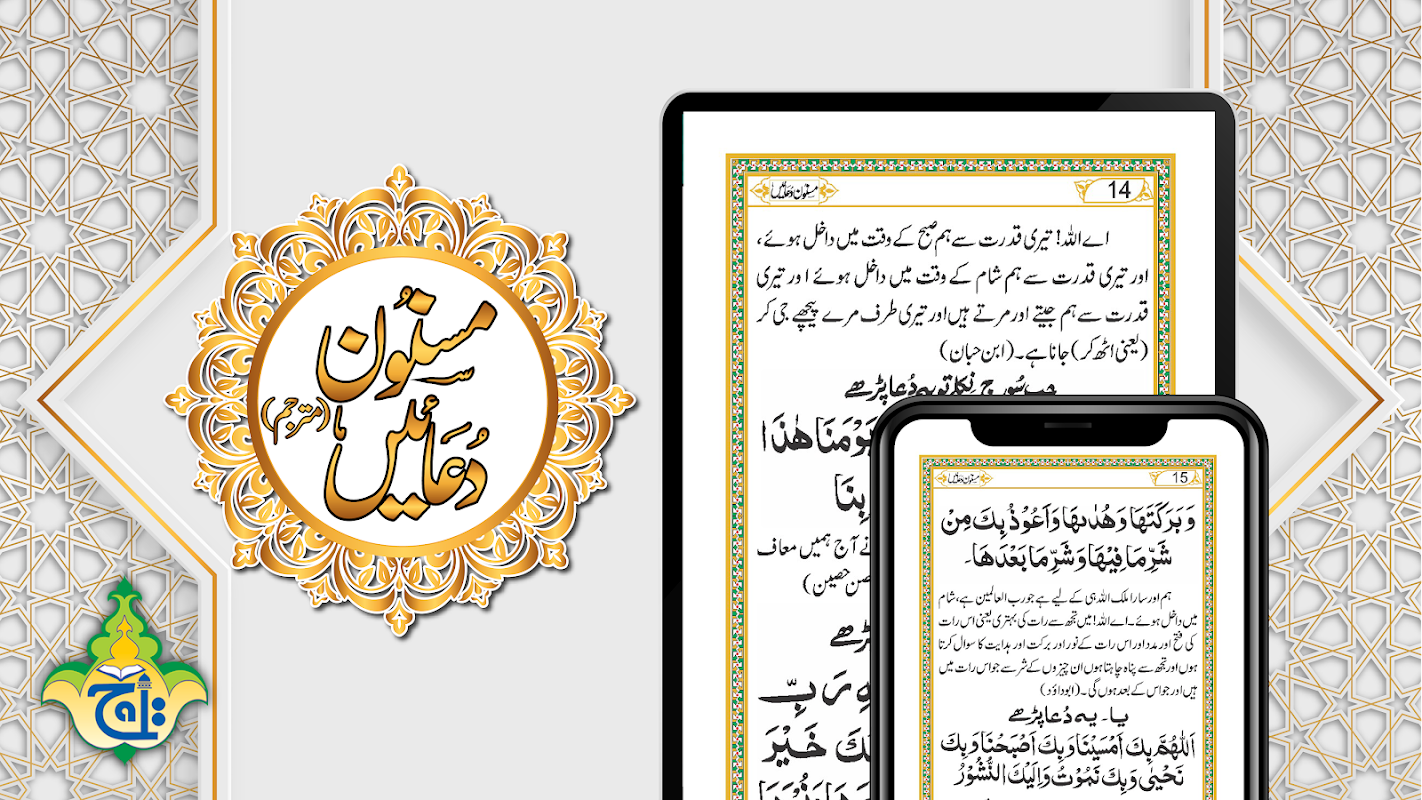 مسنُون
دُعَائیں
(مترجم)
تاج
مسنُون دُعائیں
14
اے اللہ! تیری قدرت سے ہم صبح کے وقت میں داخل ہوئے،
اور تیری قدرت سے ہم شام کے وقت میں داخل ہوئے اور تیری
قدرت سے ہم جیتے اور مرتے ہیں اور تیری طرف مرے پیچھے جی کر
(یعنی اٹھ کر) جانا ہے۔ (ابن حبان)
جب سُورج نکلے تو یہ دُعا پڑھے
یَوْمَنَا هٰذَا
بِنَا
نے آج ہمیں معاف
حصن حصین)
پڑھے
رَبِّ
خَیْرَ
مسنُون دُعائیں
15
وَ بَرَكَتَهَا وَ هُدٰىهَا وَ اَعُوْذُ بِكَ مِنْ
شَرِّ مَا فِیْهَا وَ شَرِّ مَا بَعْدَهَا۔
ہم اور سارا ملک اللہ ہی کے لیے ہے جو رب العالمین ہے، شام
میں داخل ہوئے۔ اے اللہ! میں تجھ سے رات کی بہتری یعنی اس رات
کی فتح اور مدد اور اس رات کے نور اور برکت اور ہدایت کا سوال کرتا
ہوں اور تجھ سے پناہ چاہتا ہوں ان چیزوں کے شر سے جو اس رات میں
ہیں اور جو اس کے بعد ہوں گی۔ (ابوداؤد)
یا۔ یہ دُعا پڑھے
اَللّٰهُمَّ بِكَ اَمْسَیْنَا وَ بِكَ اَصْبَحْنَا وَ بِكَ
نَحْیٰی وَ بِكَ نَمُوْتُ وَ اِلَیْكَ النُّشُوْرُ